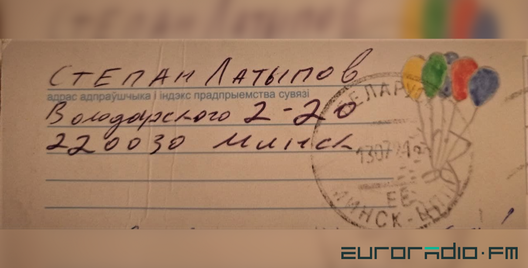 Степан Латыпов
адрас адпраўшчыка і індэкс прадпрыемства сувязі
Володарского 2-20
220030 Минск
БЕЛАРУСЬ
МИНСК
euroradio.fm